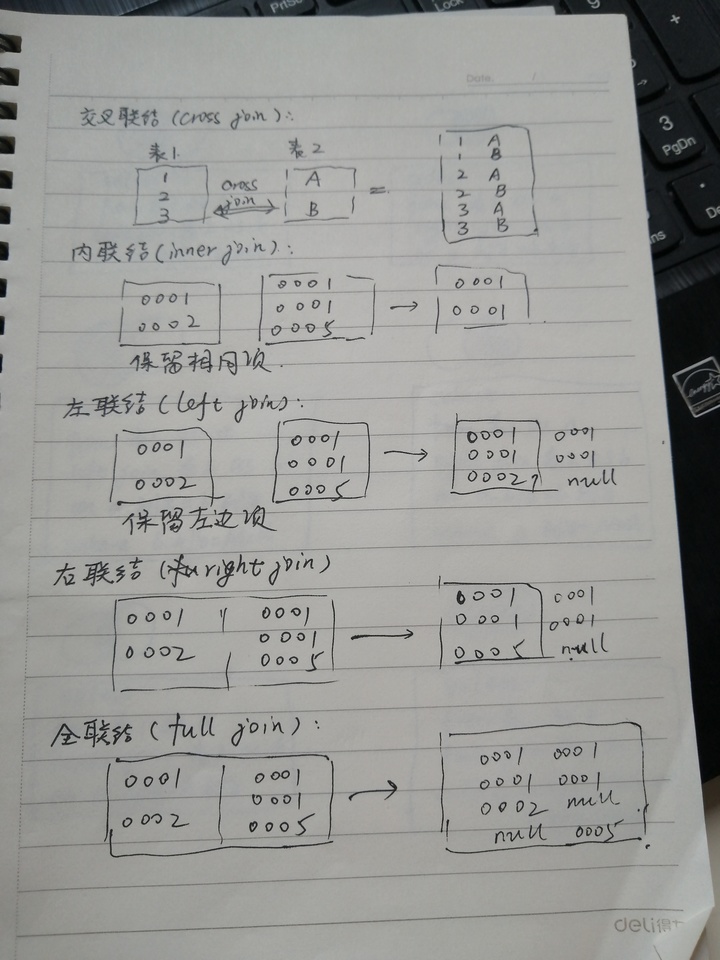 PrtSc
Lock
9
3
PgDn
Date. /
交叉联结(cross join):
表1. 表2
1 A 1 A
2 cross join = 1 B
3 B 2 A
2 B
3 A
3 B
内联结(inner join):
0001 0001 → 0001
0002 0001 0001
0005
保留相同项.
左联结(left join):
0001 0001 → 0001 0001
0002 0001 0001 0001
0005 0002 null
保留左边项
右联结(right join)
0001 0001 → 0001 0001
0002 0001 0001 0001
0005 0005 null
全联结(full join):
0001 0001 → 0001 0001
0002 0001 0001 0001
0005 0002 null
null 0005
deli得力